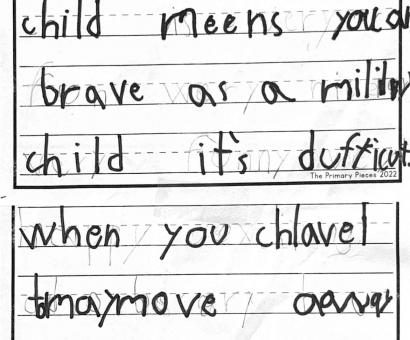 child meens you
brave as a military
child it's dufficult.
The Primary Pieces 2022
when you chlavel
move